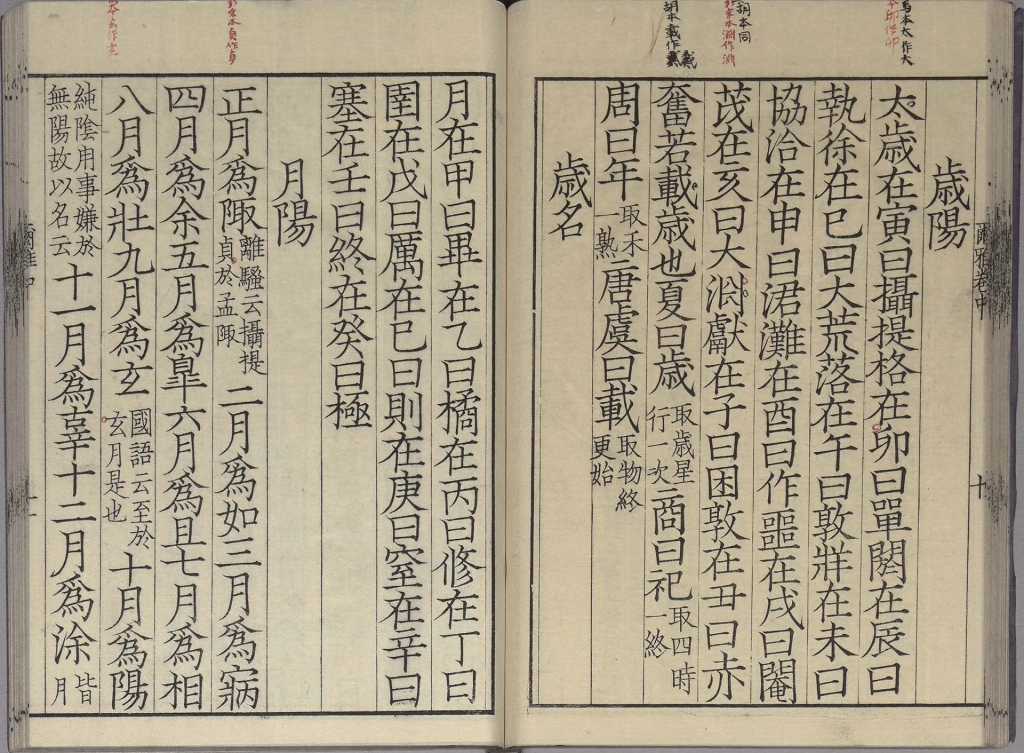 歲陽
太歲在寅曰攝提格在卯曰單閼在辰曰
執徐在巳曰大荒落在午曰敦牂在未曰
協洽在申曰涒灘在酉曰作噩在戌曰閹
茂在亥曰大淵獻在子曰困敦在丑曰赤
奮若載歲也夏曰歲取歲星行一次商曰祀取四時一終
周曰年取禾一熟唐虞曰載取物終更始
歲名
月在甲曰畢在乙曰橘在丙曰修在丁曰
圉在戊曰厲在己曰則在庚曰窒在辛曰
塞在壬曰終在癸曰極
月陽
正月為陬離騷云攝提貞於孟陬二月為如三月為寎
四月為余五月為皐六月為且七月為相
八月為壯九月為玄國語云至於玄月是也十月為陽
純陰用事嫌於無陽故以名云十一月為辜十二月為涂皆月
爾雅卷中
十